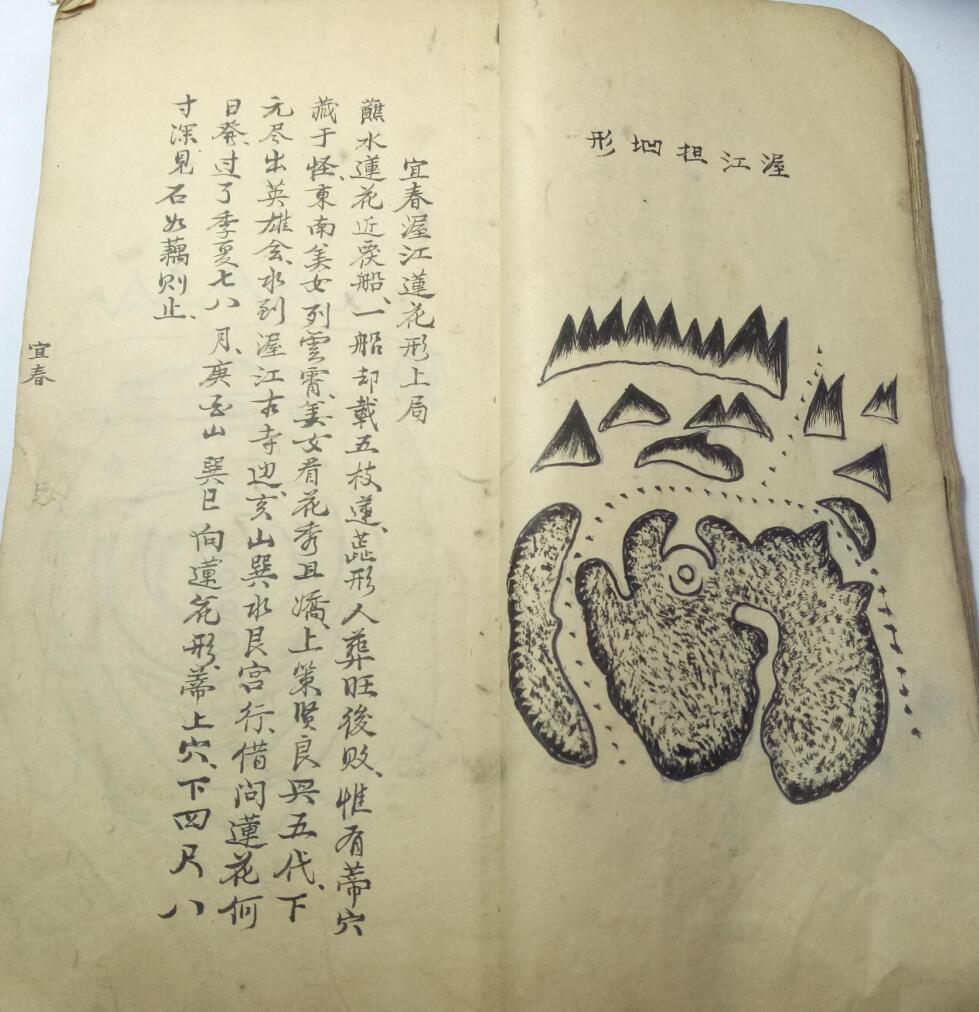 渥江担地形
宜春渥江蓮花形上局
蘸水蓮花近覆船、一船却載五枝蓮、蕋形人葬旺後敗、惟有蒂穴
藏于怪、東南美女列雲霄、美女看花秀且嬌、上策賢良興五代、下
元尽出英雄会、水到渥江古寺边、亥山巽水艮宮行、借问蓮花何
日發、过了季夏七八月、庚酉山巽巳向蓮花形、蒂上穴、下四尺八
寸深、見石如藕则止、
宜春